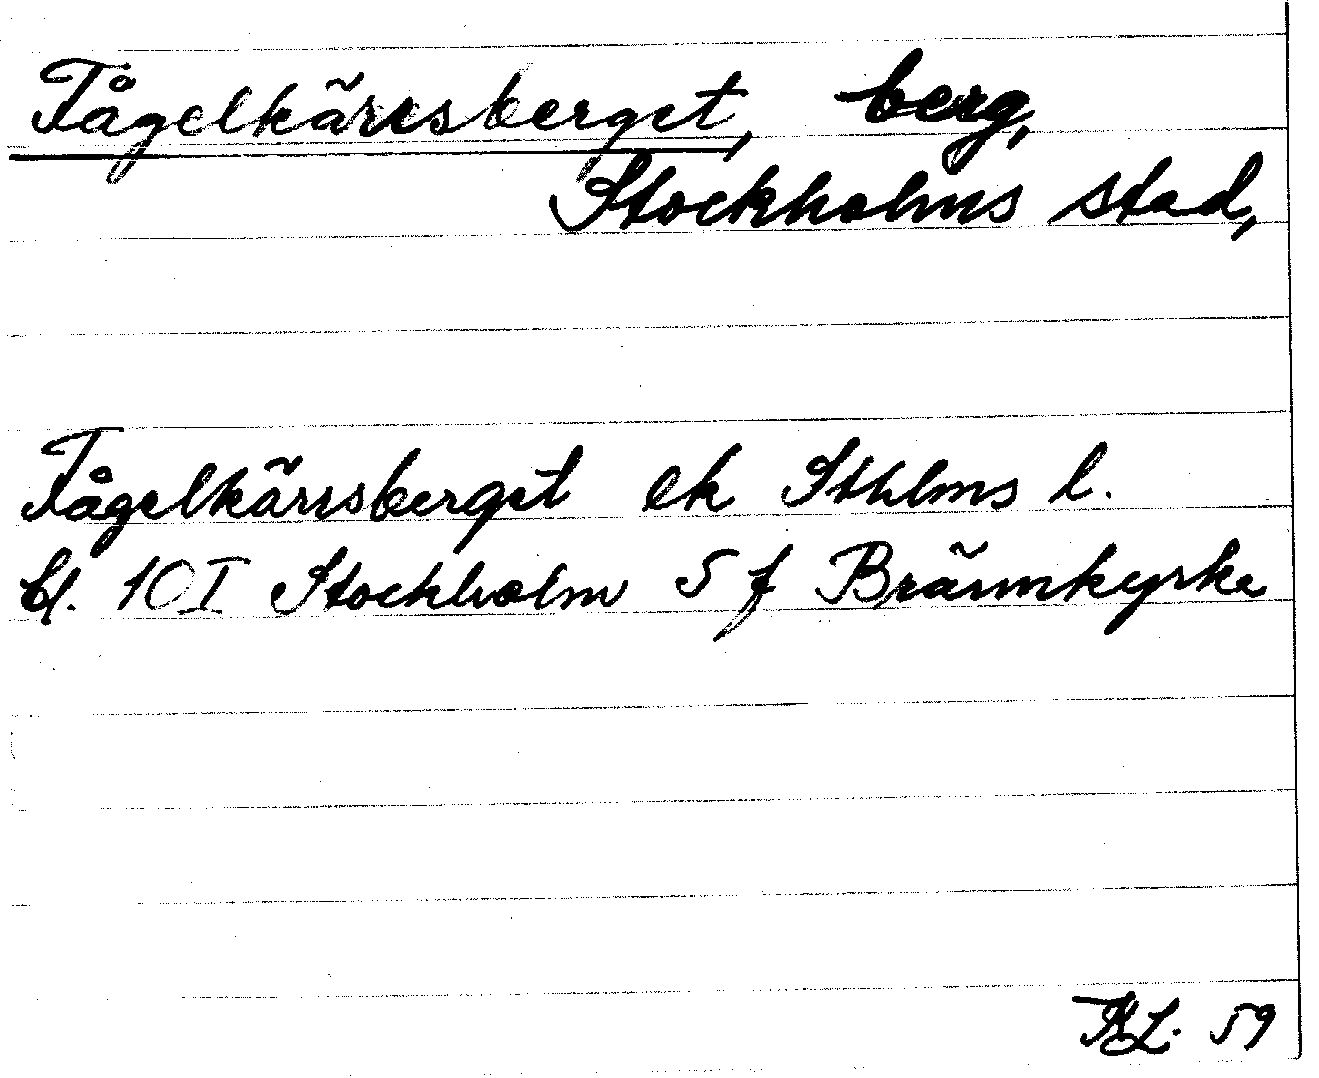 Fågelkärrsberget, berg,
Stockholms stad,
Fågelkärrsberget ek Sthlms l.
bl. 10I Stockholm 5 f Brännkyrka
KL. 59